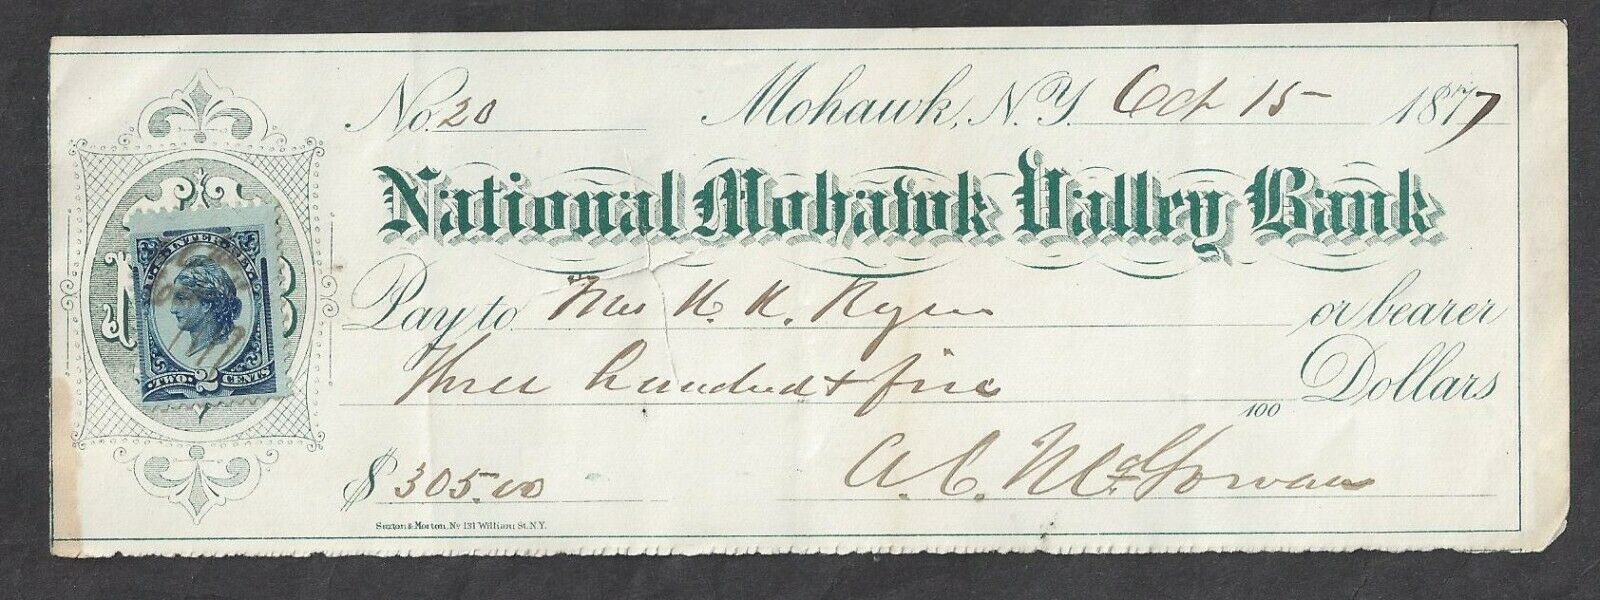 No. 20 Mohawk, N.Y. Oct 15 1877
National Mohawk Valley Bank
Pay to Mrs H. H. or bearer
Three hundred & five 100 Dollars
$ 305.00 A. C. McGowan
U.S. INTER. REV.
TWO 2 CENTS
Sexton & Morton, No 131 William St. N.Y.